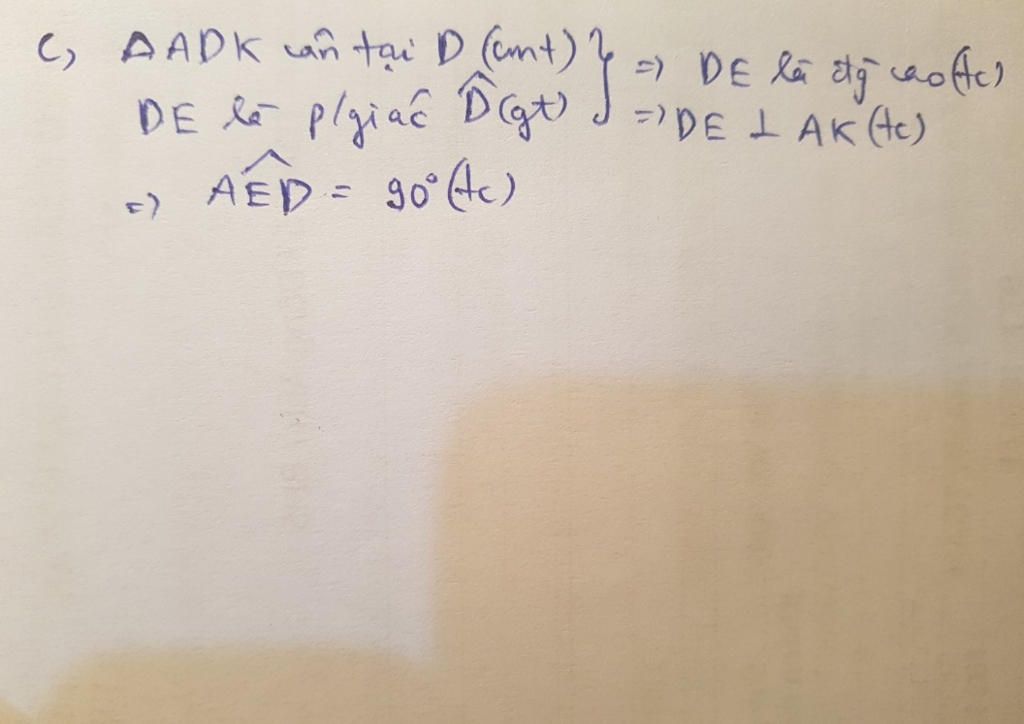 c, ΔADK cân tại D (cmt) } => DE là đg cao (tc)
DE là p/giác D̂ (gt) => DE ⊥ AK (tc)
=> AÊD = 90° (tc)